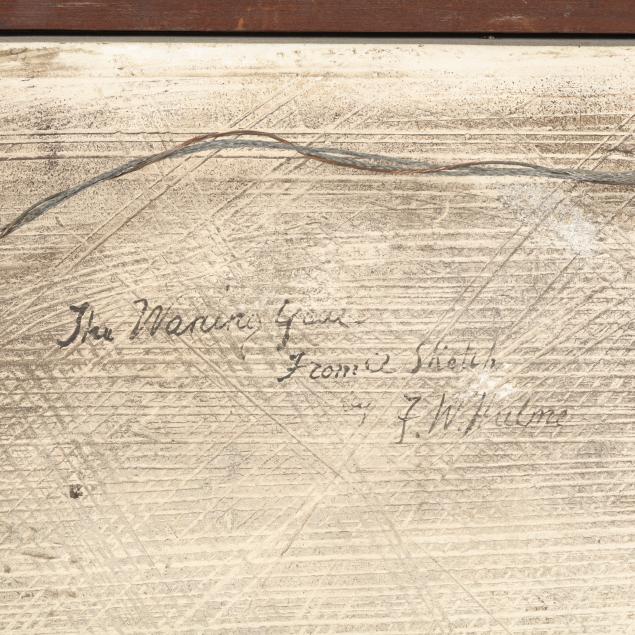 The Waning Year
From a Sketch
by F. W. Hulme